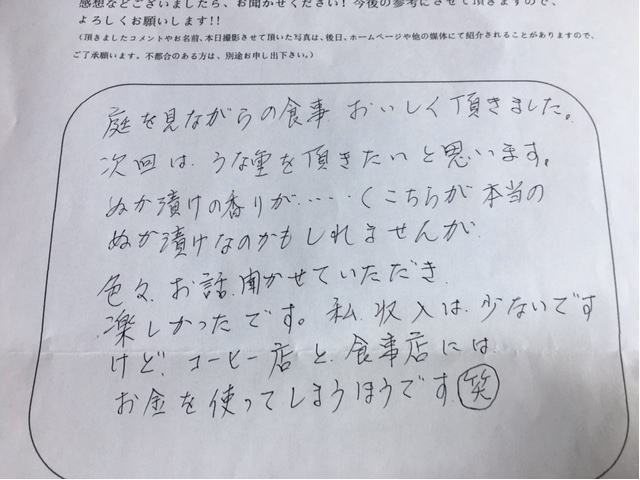 感想などございましたら、お聞かせください！今後の参考にさせて頂きますので、
よろしくお願いします!!
（頂きましたコメントやお名前、本日撮影させて頂いた写真は、後日、ホームページや他の媒体にて紹介されることがありますので、
ご了承願います。不都合のある方は、別途お申し出下さい。）
庭を見ながらの食事 おいしく頂きました。
次回は、うな重を頂きたいと思います。
ぬか漬けの香りが・・・・くこちらが本当の
ぬか漬けなのかもしれませんが
色々、お話、聞かせていただき
楽しかったです。私、収入は、少ないです
けど、コーヒー店と、食事店には
お金を使ってしまうほうです 笑